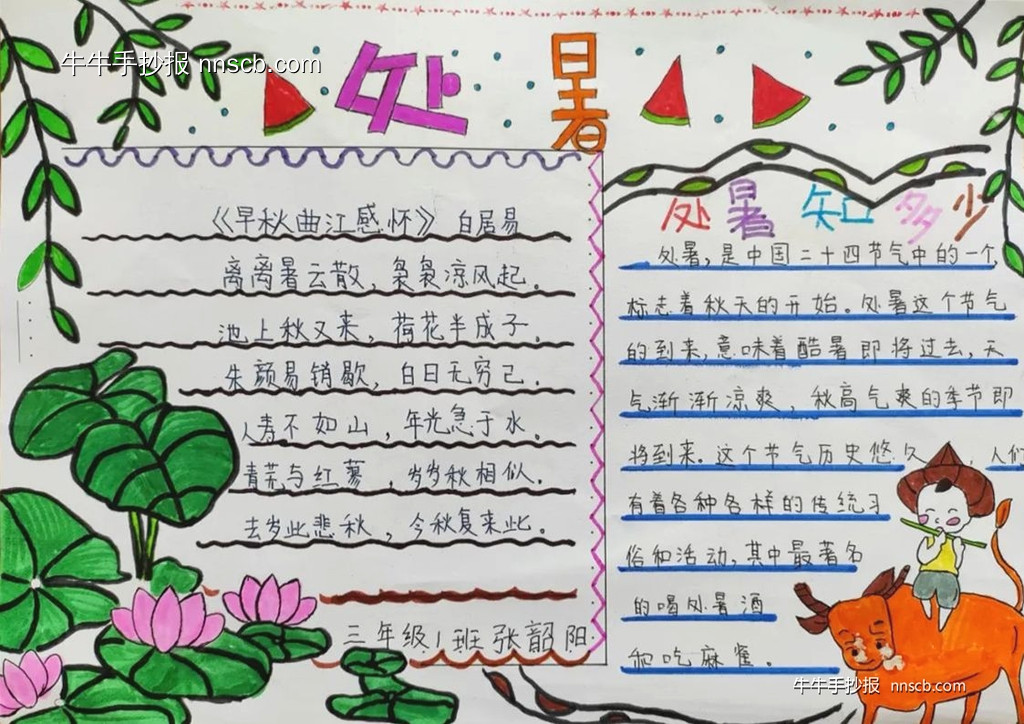 牛牛手抄报 nnscb.com
处暑
《早秋曲江感怀》 白居易
离离暑云散，袅袅凉风起。
池上秋又来，荷花半成子。
朱颜易销歇，白日无穷已。
人寿不如山，年光急于水。
青芜与红蓼，岁岁秋相似。
去岁此悲秋，今秋复来此。
三年级1班张韶阳
处暑知多少
处暑，是中国二十四节气中的一个，
标志着秋天的开始。处暑这个节气
的到来，意味着酷暑即将过去，天
气渐渐凉爽，秋高气爽的季节即
将到来。这个节气历史悠久，人们
有着各种各样的传统习
俗和活动，其中最著名
的喝处暑酒
和吃麻雀。
牛牛手抄报 nnscb.com